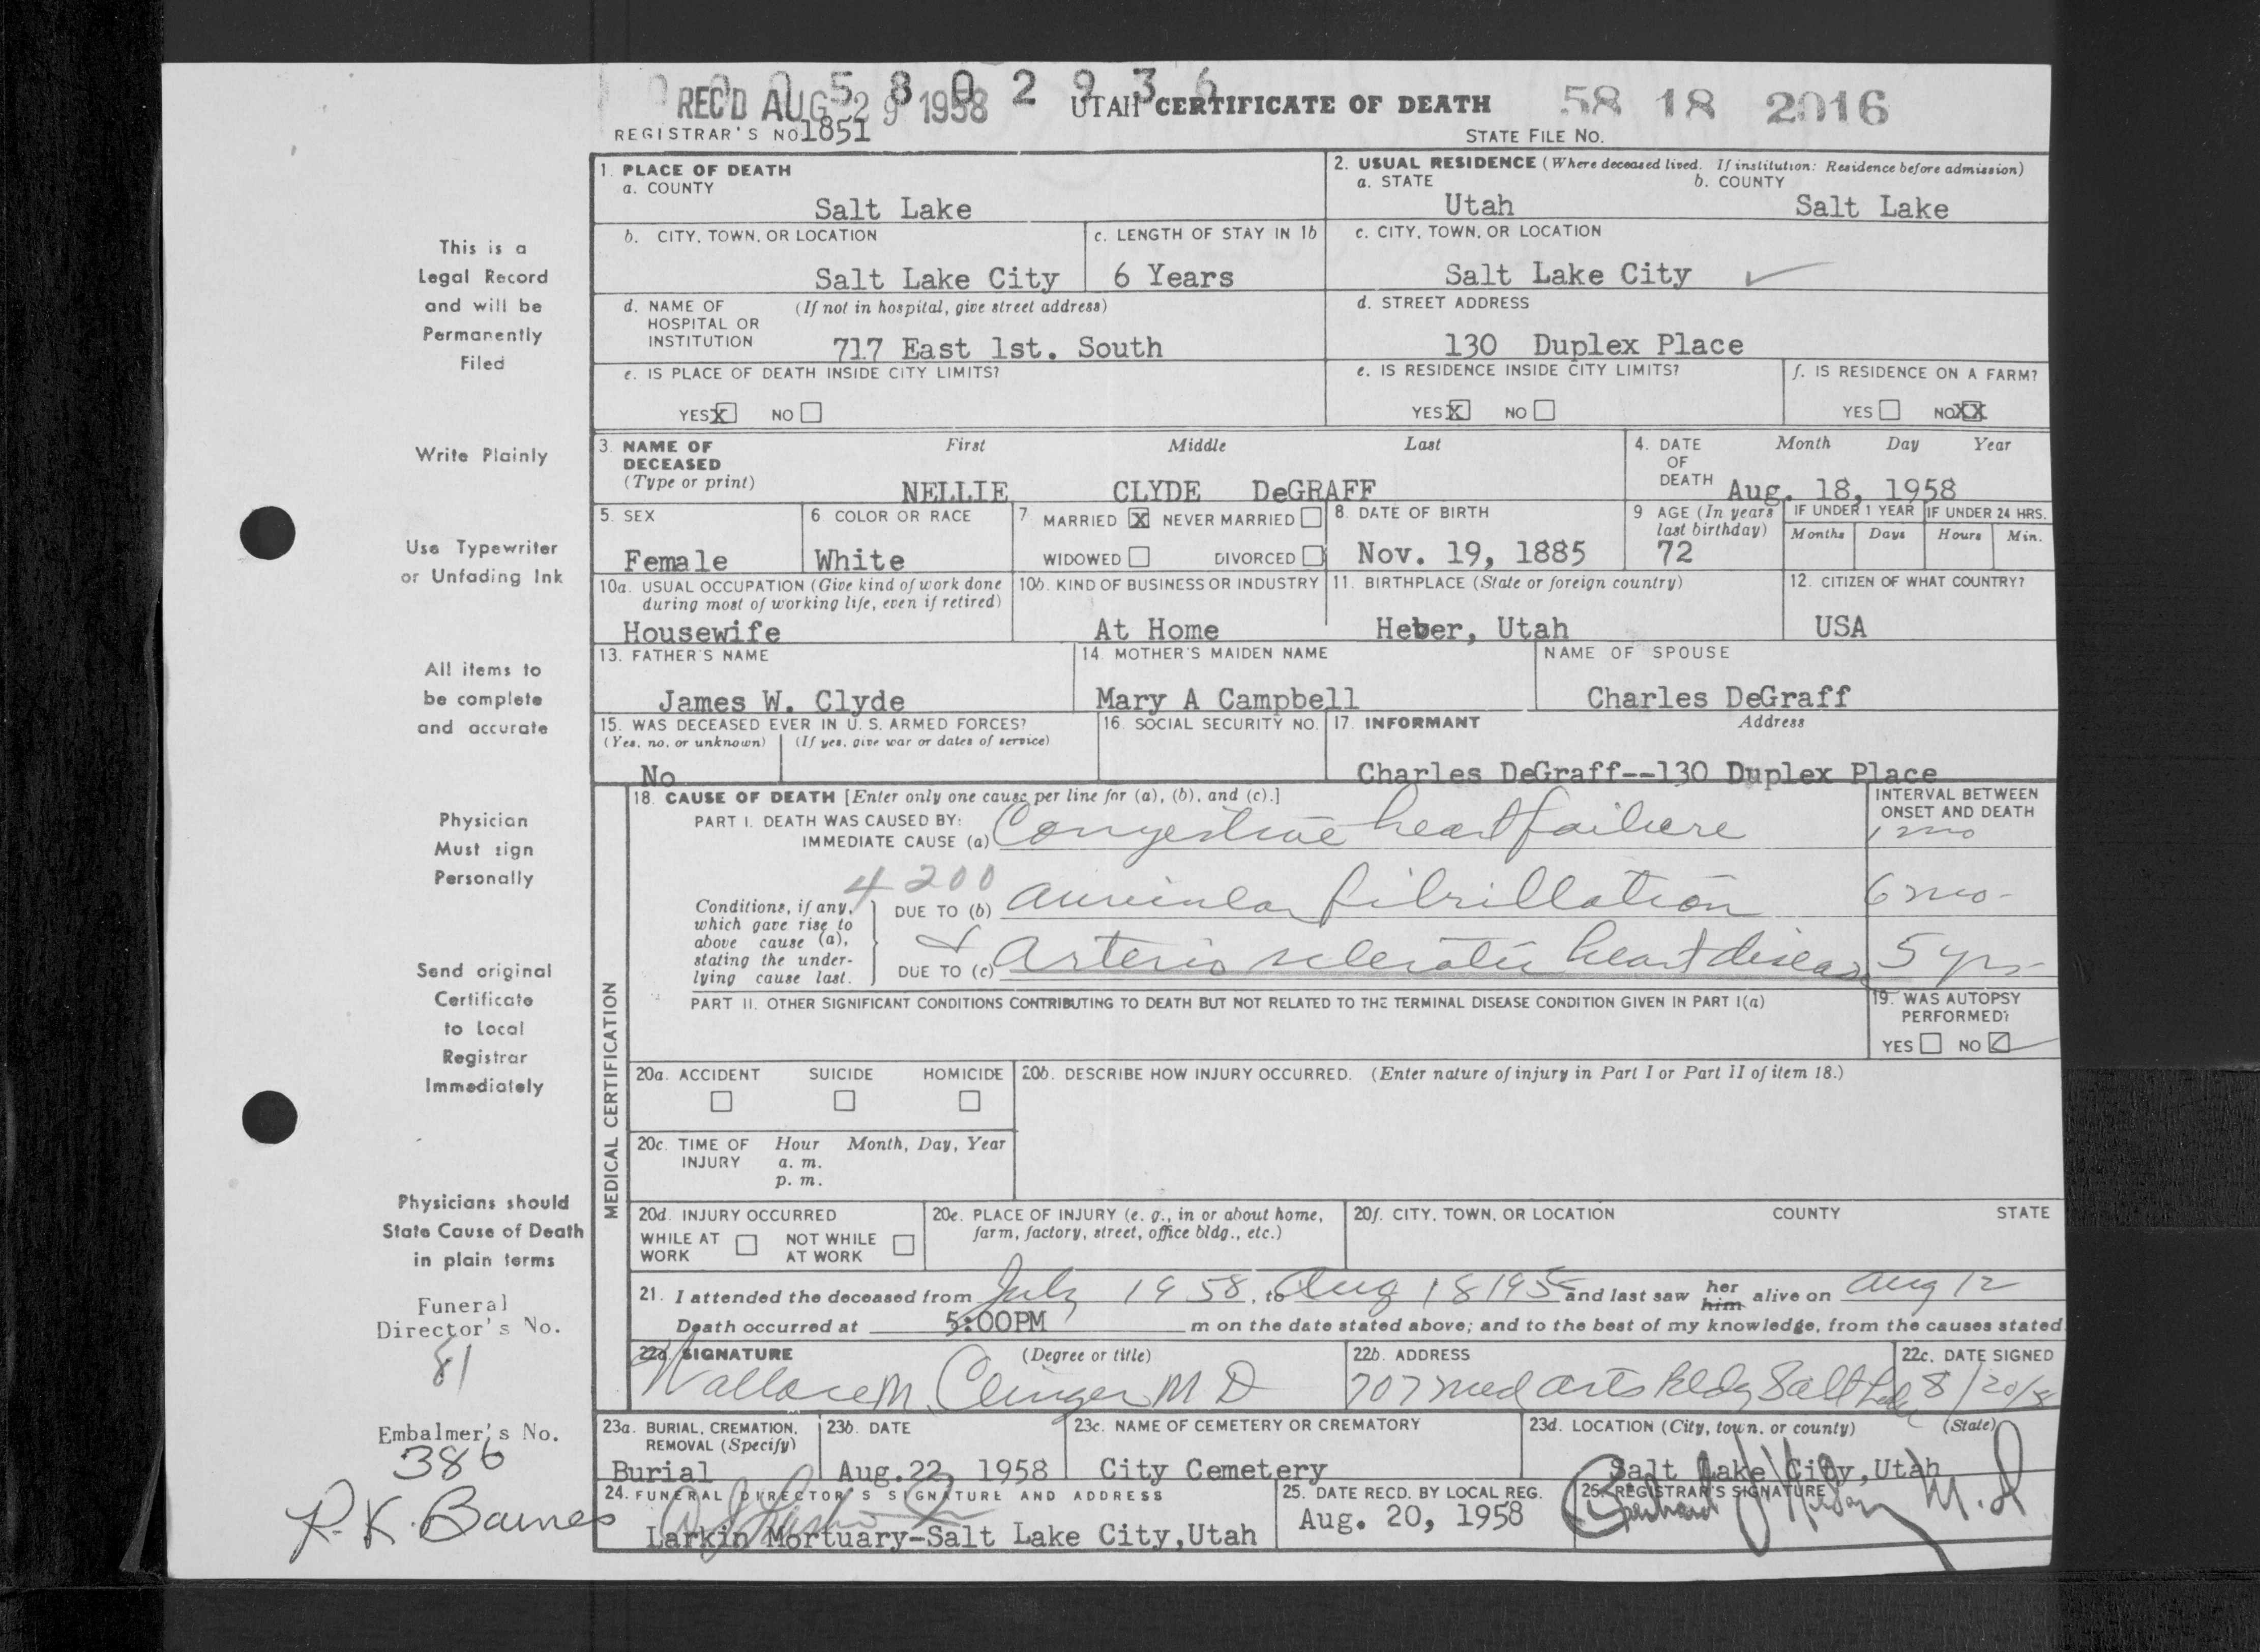 0 0 0 5 8 0 2 9 3 6
REC'D AUG 29 1958 UTAH CERTIFICATE OF DEATH 58 18 2016
REGISTRAR'S NO. 1851 STATE FILE NO.
1. PLACE OF DEATH
a. COUNTY
Salt Lake
2. USUAL RESIDENCE (Where deceased lived. If institution: Residence before admission)
a. STATE b. COUNTY
Utah Salt Lake
b. CITY, TOWN, OR LOCATION
Salt Lake City
c. LENGTH OF STAY IN 1b
6 Years
c. CITY, TOWN, OR LOCATION
Salt Lake City ✓
d. NAME OF (If not in hospital, give street address)
HOSPITAL OR
INSTITUTION
717 East 1st. South
d. STREET ADDRESS
130 Duplex Place
e. IS PLACE OF DEATH INSIDE CITY LIMITS?
YES X NO
e. IS RESIDENCE INSIDE CITY LIMITS?
YES X NO
f. IS RESIDENCE ON A FARM?
YES NO XX
3. NAME OF First Middle Last
DECEASED
(Type or print)
NELLIE CLYDE DeGRAFF
4. DATE Month Day Year
OF
DEATH Aug. 18, 1958
5. SEX
Female
6 COLOR OR RACE
White
7 MARRIED X NEVER MARRIED
WIDOWED DIVORCED
8. DATE OF BIRTH
Nov. 19, 1885
9 AGE (In years
last birthday)
72
IF UNDER 1 YEAR
Months Days
IF UNDER 24 HRS.
Hours Min.
10a. USUAL OCCUPATION (Give kind of work done
during most of working life, even if retired)
Housewife
10b. KIND OF BUSINESS OR INDUSTRY
At Home
11. BIRTHPLACE (State or foreign country)
Heber, Utah
12. CITIZEN OF WHAT COUNTRY?
USA
13. FATHER'S NAME
James W. Clyde
14. MOTHER'S MAIDEN NAME
Mary A Campbell
NAME OF SPOUSE
Charles DeGraff
15. WAS DECEASED EVER IN U. S. ARMED FORCES?
(Yes, no, or unknown) (If yes, give war or dates of service)
No
16. SOCIAL SECURITY NO.
17. INFORMANT Address
Charles DeGraff--130 Duplex Place
MEDICAL CERTIFICATION
18. CAUSE OF DEATH [Enter only one cause per line for (a), (b), and (c).]
INTERVAL BETWEEN
ONSET AND DEATH
PART I. DEATH WAS CAUSED BY:
IMMEDIATE CAUSE (a) Congestive heart failure 1 mo
4200
Conditions, if any,
which gave rise to
above cause (a),
stating the under-
lying cause last.
DUE TO (b) auricular fibrillation 6 mo-
DUE TO (c) & Arterio sclerotic heart disease 5 yrs
PART II. OTHER SIGNIFICANT CONDITIONS CONTRIBUTING TO DEATH BUT NOT RELATED TO THE TERMINAL DISEASE CONDITION GIVEN IN PART I(a)
19. WAS AUTOPSY
PERFORMED?
YES NO ✓
20a. ACCIDENT SUICIDE HOMICIDE
20b. DESCRIBE HOW INJURY OCCURRED. (Enter nature of injury in Part I or Part II of item 18.)
20c. TIME OF Hour Month, Day, Year
INJURY a. m.
p. m.
20d. INJURY OCCURRED
WHILE AT NOT WHILE
WORK AT WORK
20e. PLACE OF INJURY (e. g., in or about home,
farm, factory, street, office bldg., etc.)
20f. CITY, TOWN, OR LOCATION COUNTY STATE
21. I attended the deceased from July 1958, to Aug 18 195 and last saw her him alive on Aug 12
Death occurred at 5:00PM m on the date stated above; and to the best of my knowledge, from the causes stated
22a. SIGNATURE (Degree or title)
Wallace M. Clinger M D
22b. ADDRESS
707 Med Arts Bldg Salt Lake
22c. DATE SIGNED
8/20/8
23a. BURIAL, CREMATION,
REMOVAL (Specify)
Burial
23b. DATE
Aug.22, 1958
23c. NAME OF CEMETERY OR CREMATORY
City Cemetery
23d. LOCATION (City, town, or county) (State)
Salt Lake City,Utah
24. FUNERAL DIRECTOR'S SIGNATURE AND ADDRESS
Larkin Mortuary-Salt Lake City,Utah
25. DATE RECD. BY LOCAL REG.
Aug. 20, 1958
26. REGISTRAR'S SIGNATURE
M.D
This is a
Legal Record
and will be
Permanently
Filed
Write Plainly
Use Typewriter
or Unfading Ink
All items to
be complete
and accurate
Physician
Must sign
Personally
Send original
Certificate
to Local
Registrar
Immediately
Physicians should
State Cause of Death
in plain terms
Funeral
Director's No.
81
Embalmer's No.
386
R. K. Barnes